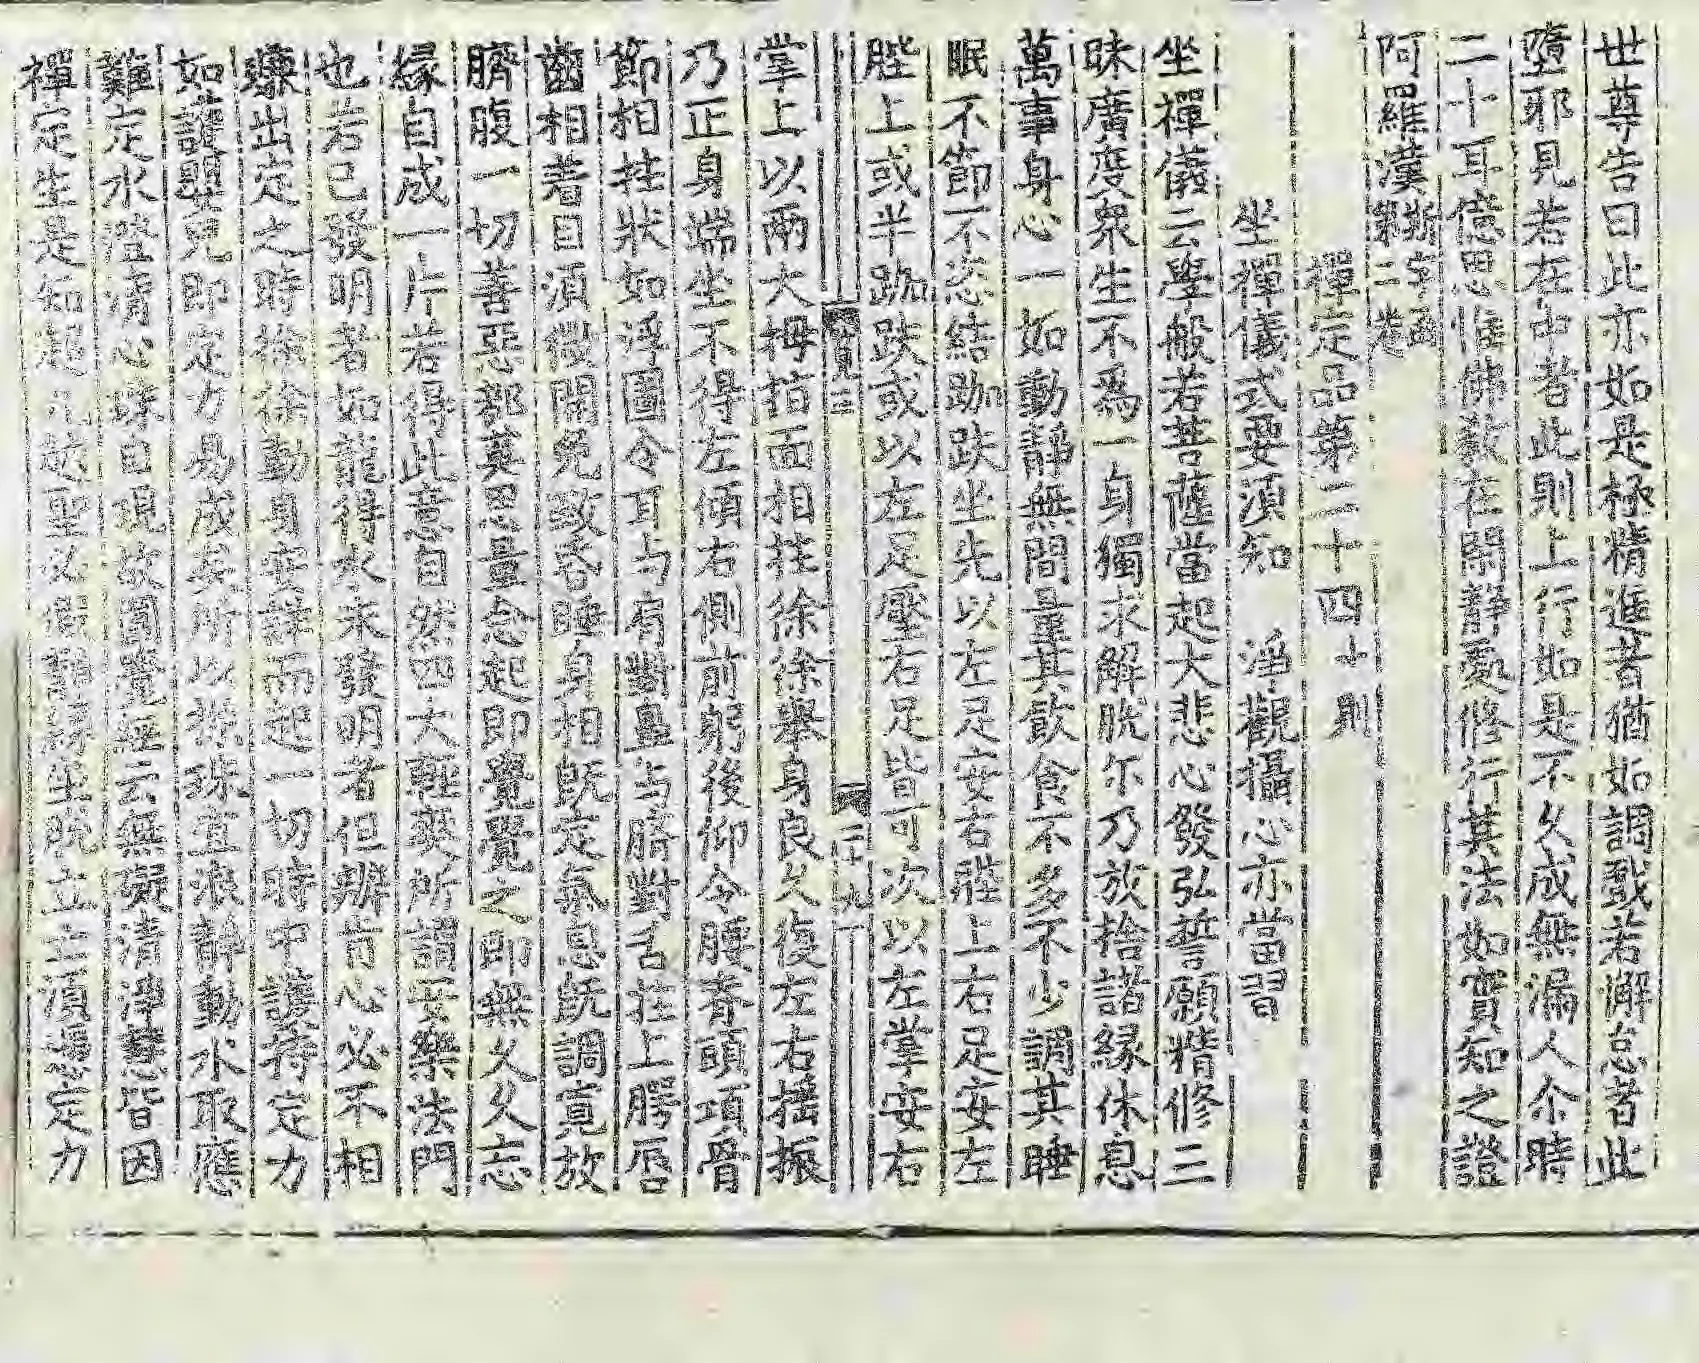 世尊告曰此亦如是極精進者猶如調戱若懈怠者此
墮邪見若在中者此則上行如是不久成無漏人尒時
二十耳億思惟佛教在閑静處修行其法如實知之證
阿羅漢
禪定品第二十四 十則
坐禪儀式要湏知 淨觀攝心亦當習
坐禪儀云學般若菩薩當起大悲心發弘誓願精修三
昧廣度衆生不爲一身獨求解脱尔乃放捨諸縁休息
萬事身心一如動静無間量其飲食不多不少調其睡
眠不節不恣結跏趺坐先以左足安右䏶上右足安左
䏶上或半跏趺或以左足壓右足皆可次以左掌安右
掌上以兩大拇指面相拄徐徐舉身良久復左右揺振
乃正身端坐不得左傾右側前躬後仰令腰脊頭項骨
節相拄狀如浮圖令耳与肩對鼻与臍對舌拄上腭唇
齒相着目湏微開免致昏睡身相既定氣息既調寛放
臍腹一切善惡都莫思量念起即覺覺之即無久久忘
縁自成一片若得此意自然四大輕爽所謂安樂法門
也若已發明者如龍得水未發明者但辨肯心必不相
賺出定之時徐徐動身安詳而起一切時中護持定力
如護嬰児即定力易成矣所以探珠宜浪静動水取應
難定水澄清心珠自現故圓覺經云無礙清淨慧皆因
禪定生是知超凡越聖必借静縁坐脱立亡湏憑定力